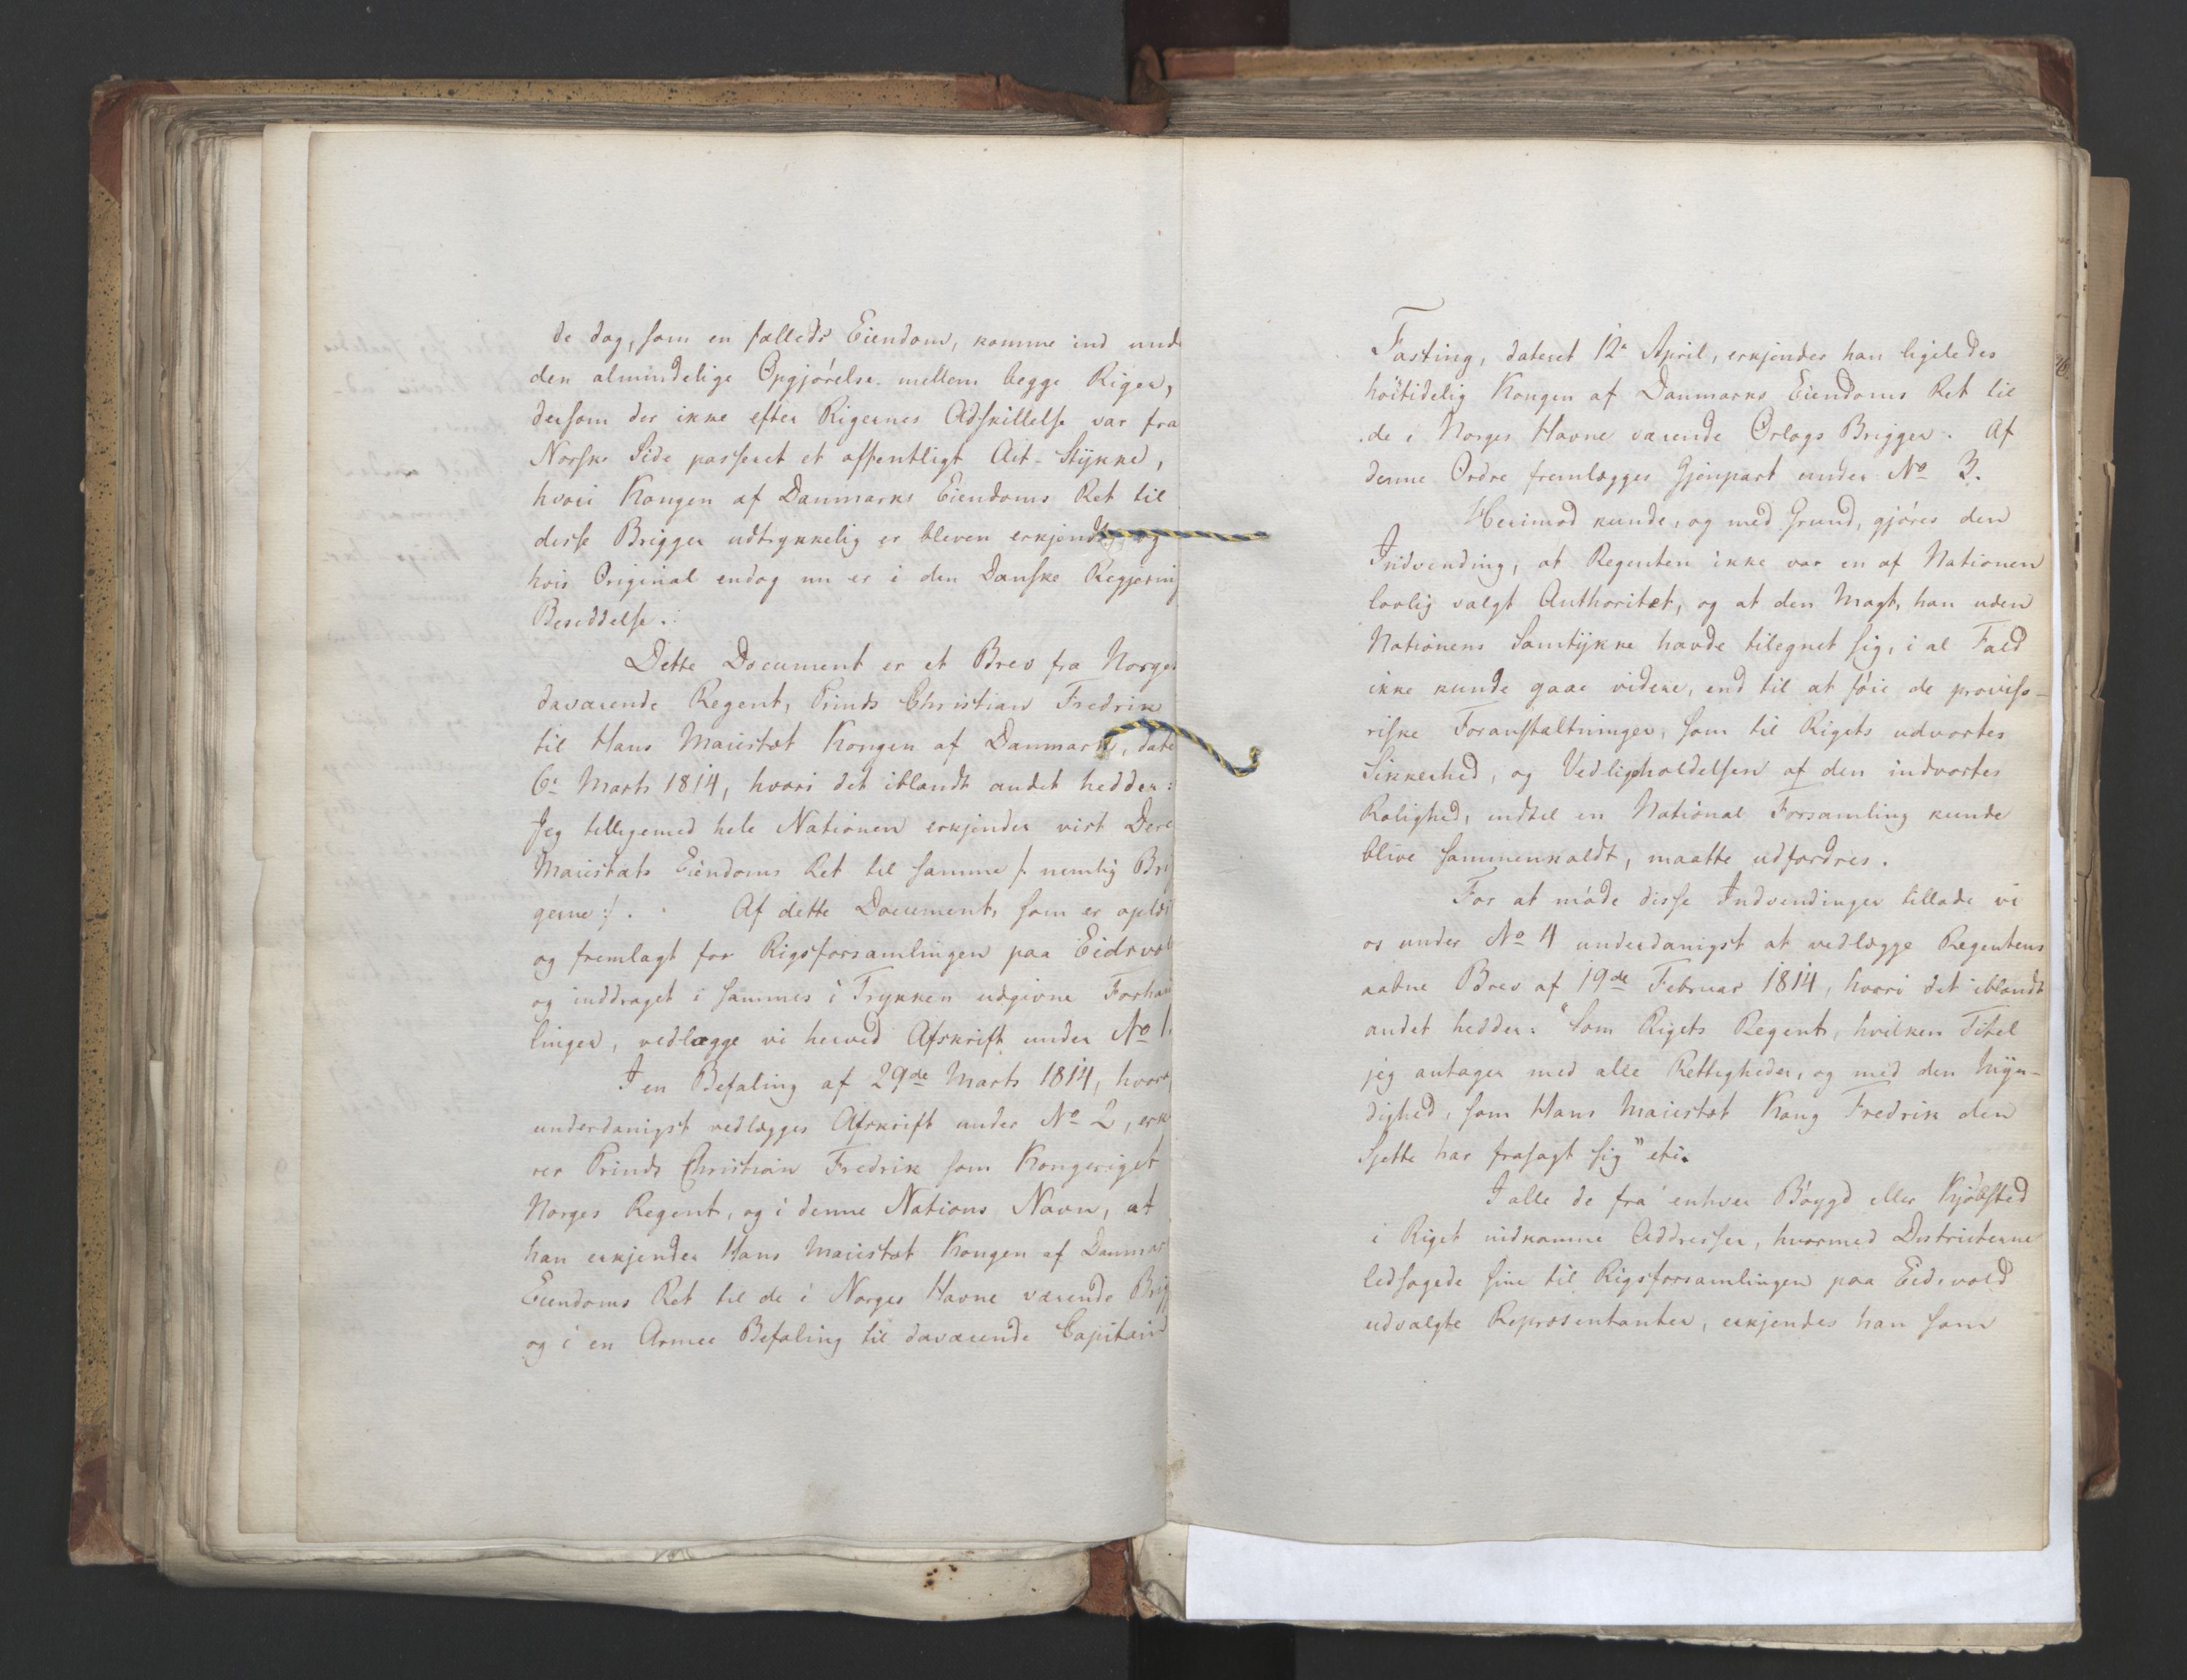 de dog, som en fælleds Eiendom, komme ind unde
den almindelige Opgjørelse mellem begge Riger,
dersom der ikke efter Rigernes Adskillelse var fra
Norsk Side passeret et offentligt Act-Stykke,
hvori Kongen af Danmarks Eiendoms Ret til
disse Brigger udtrykkelig er bleven erkjendt, og
hvis Original endog nu er i den Danske Regjering
Besiddelse.
Dette Document er et Brev fra Norges
daværende Regent, Prinds Christian Fredrik
til Hans Maiestæt Kongen af Danmark, date
6te Marts 1814, hvori det iblandt andet hedder:
Jeg tilligemed hele Nationen erkjender vist Dere
Maiestæts Eiendoms Ret til samme /: nemlig Bri
gerne :/. Af dette Document, som er oplæs
og fremlagt for Rigsforsamlingen paa Eidsvol
og inddraget i sammes i Trykken udgivne Forhan
linger, vedlægge vi herved Afskrift under No 1.
I en Befaling af 29de Marts 1814, hvora
underdanigst vedlægges Afskrift under No 2, erk
rer Prinds Christian Fredrik som Kongeriget
Norges Regent, og i denne Nations Navn, at
han erkjender Hans Maiestæt Kongen af Danmar
Eiendoms Ret til de i Norges Havne værende Brig
og i en Armee Befaling til daværende Capitain
Fasting, dateret 12te April, erkjender han ligeledes
höitidelig Kongen af Danmarks Eiendoms Ret til
de i Norges Havne værende Orlogs Brigger. Af
denne Ordre fremlægges Gjenpart under No 3.
Herimod kunde, og med Grund, gjøres den
Indvending, at Regenten ikke var en af Nationen
lovlig valgt Authoritet, og at den Magt, han uden
Nationens Samtykke havde tilegnet sig, i al Fald
ikke kunde gaae videre, end til at føie de proviso-
riske Foranstaltninger, som til Rigets udvortes
Sikkerhed, og Vedligeholdelsen af den indvortes
Rolighed, indtil en National Forsamling kunde
blive sammenkaldt, maatte udfordres.
For at møde disse Indvendinger tillade vi
os under No 4 underdanigst at vedlægge Regentens
aabne Brev af 19de Februar 1814, hvori det iblandt
andet hedder: "Som Rigets Regent, hvilken Titel
jeg antager med alle Rettigheder, og med den Myn-
dighed, som Hans Maiestæt Kong Fredrik den
Sjette har frasagt sig" etc.
I alle de fra enhver Bøygd eller Kjøbsted
i Riget indkomne Addresser, hvormed Districterne
ledsagede sine til Rigsforsamlingen paa Eidsvold
udvalgte Repræsentanter, erkjendes han som